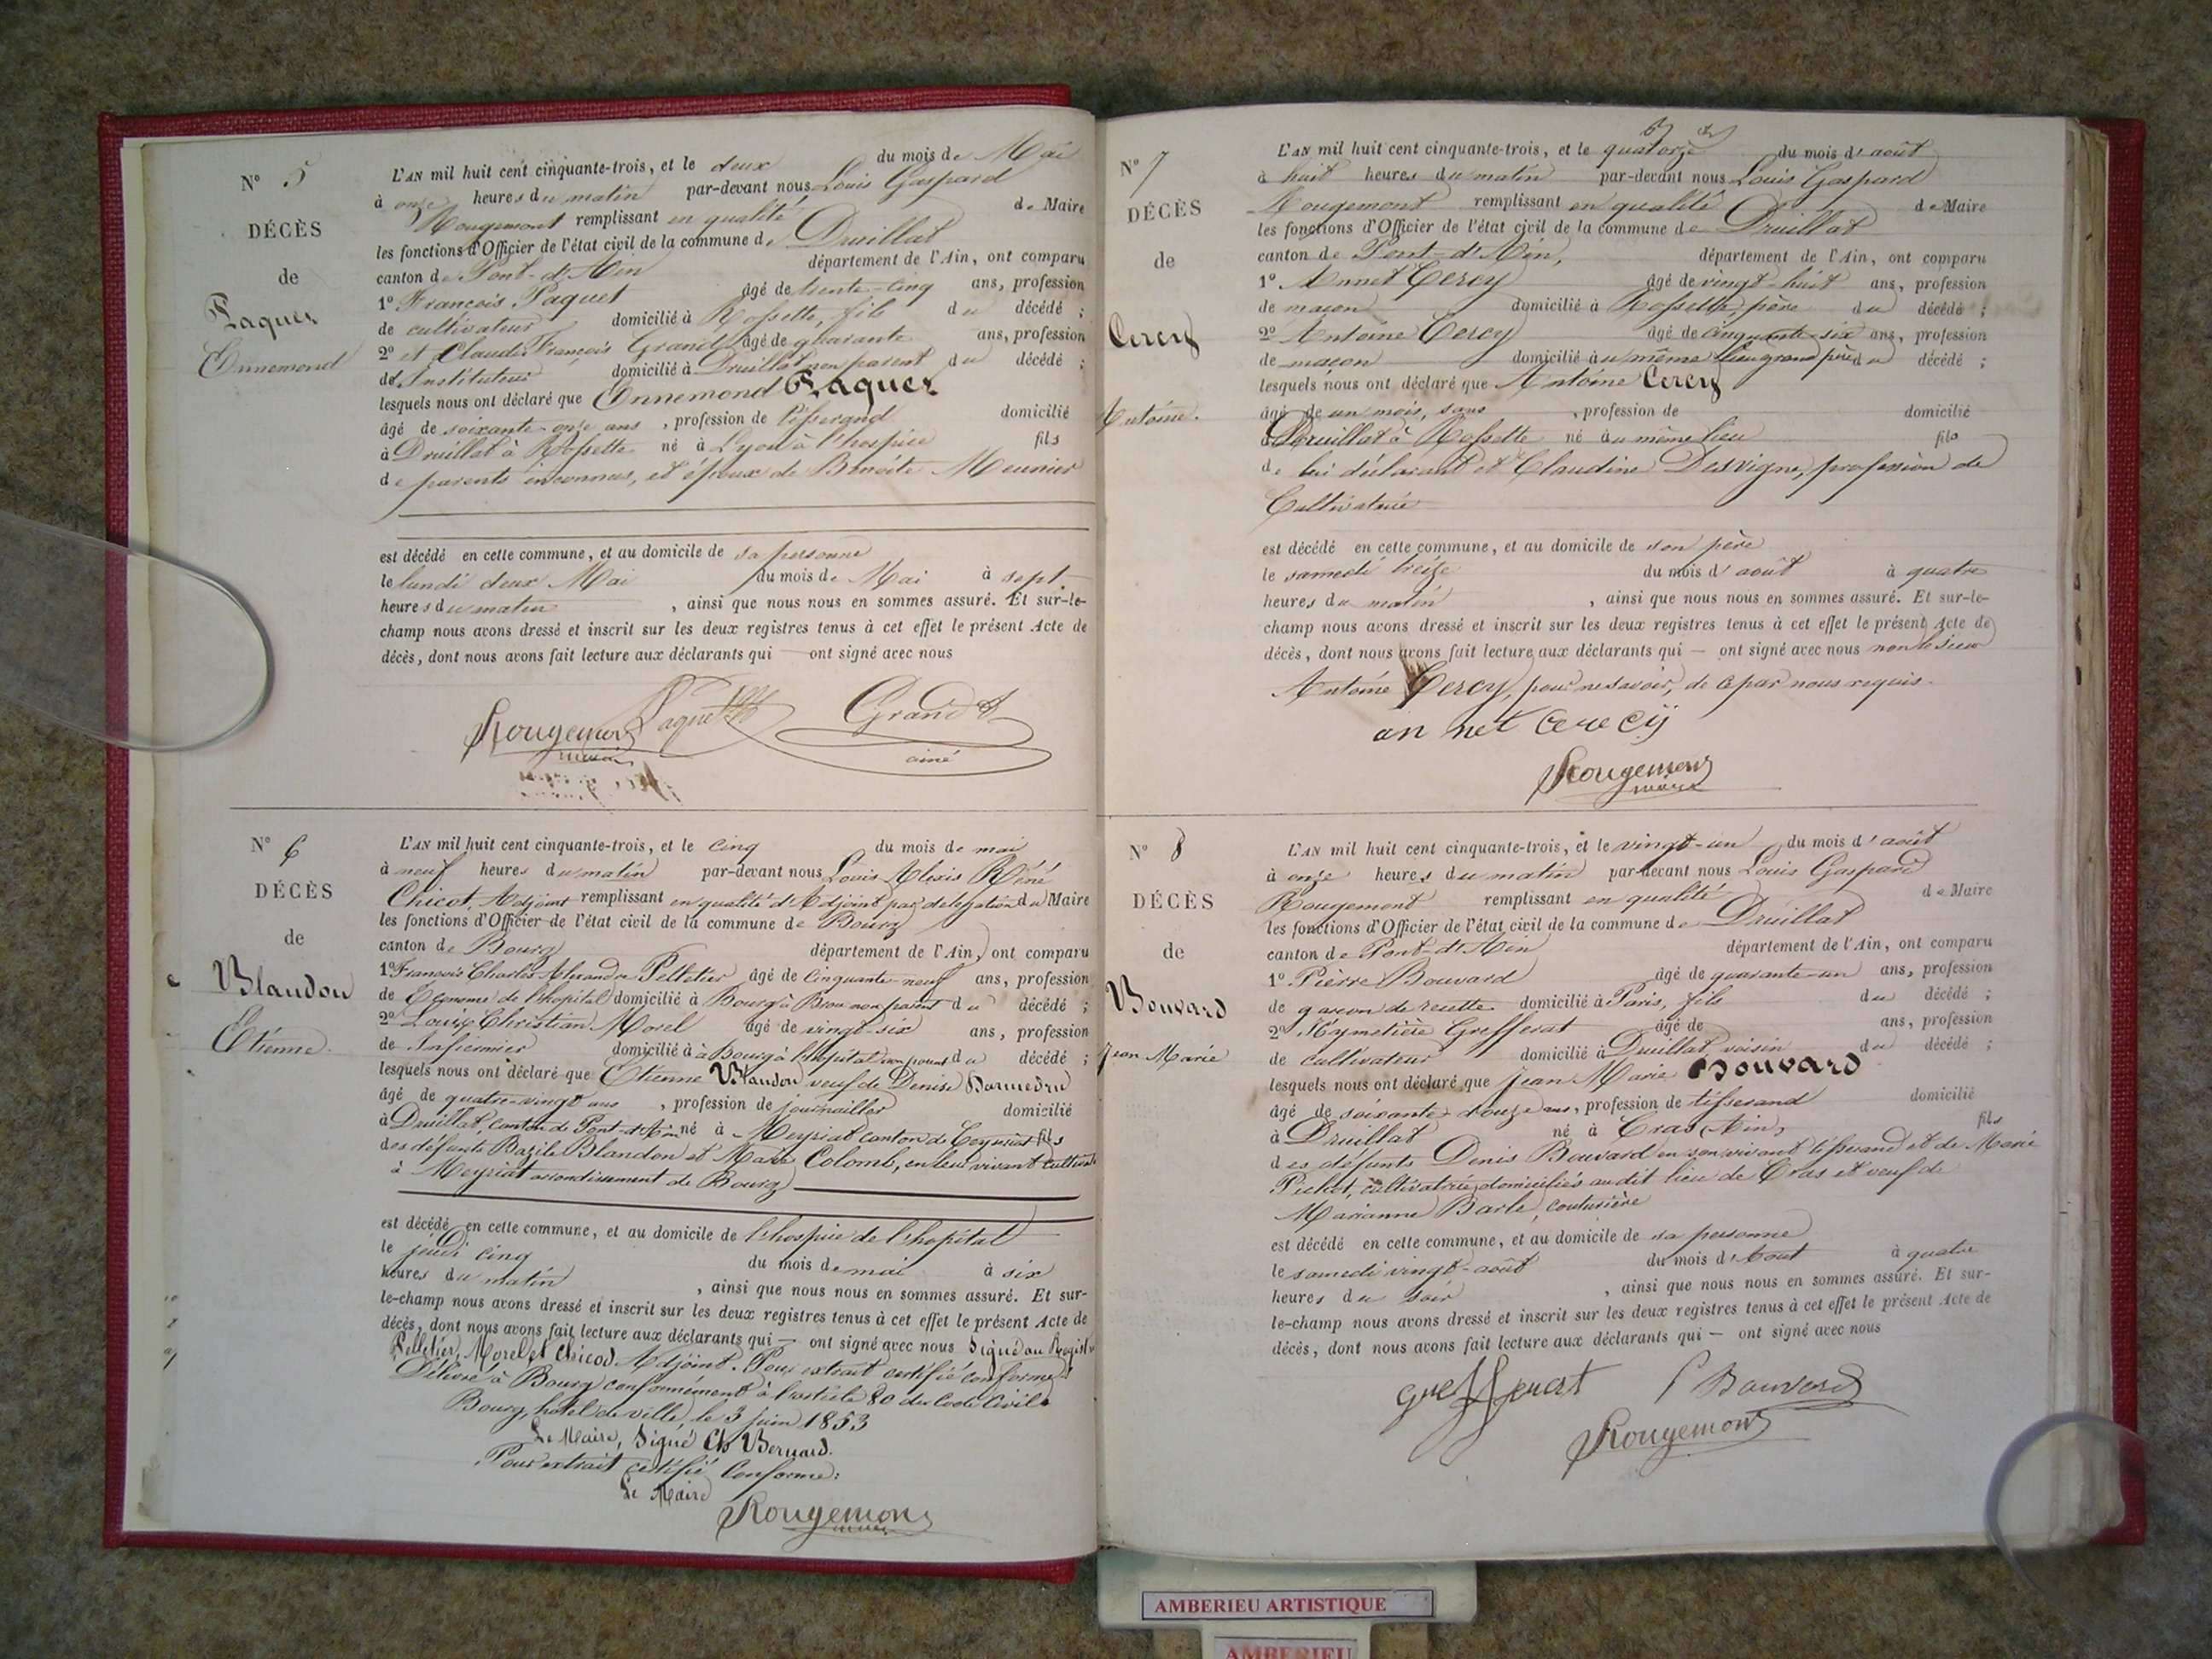 N° 5
DÉCÈS
de
Paquet
Ennemond
L'AN mil huit cent cinquante-trois, et le deux du mois de Mai
à onze heures du matin par-devant nous Louis Gaspard
Rougemont remplissant en qualité de Maire
les fonctions d'Officier de l'état civil de la commune de Druillat
canton de Pont-d'Ain département de l'Ain, ont comparu
1° François Paquet âgé de trente-cinq ans, profession
de cultivateur domicilié à Rossette, fils du décédé ;
2° et Claude François Grand âgé de quarante ans, profession
d'Instituteur domicilié à Druillat non parent du décédé ;
lesquels nous ont déclaré que Ennemond Paquet
âgé de soixante-onze ans, profession de tisserand domicilié
à Druillat à Rossette né à Lyon à l'hospice fils
de parents inconnus, et époux de Benoite Meunier
est décédé en cette commune, et au domicile de sa personne
le lundi deux Mai du mois de Mai à sept
heures du matin, ainsi que nous nous en sommes assuré. Et sur-le-
champ nous avons dressé et inscrit sur les deux registres tenus à cet effet le présent Acte de
décès, dont nous avons fait lecture aux déclarants qui — ont signé avec nous
Rougemont Paquet Grand
maire ainé
N° 6
DÉCÈS
de
Blandon
Etienne
L'AN mil huit cent cinquante-trois, et le cinq du mois de mai
à neuf heures du matin par-devant nous Louis Alexis Réné
Chicot, Adjoint remplissant en qualité d'Adjoint par délégation du Maire
les fonctions d'Officier de l'état civil de la commune de Bourg
canton de Bourg département de l'Ain, ont comparu
1° François Charles Alexandre Pelletier âgé de cinquante-neuf ans, profession
de Econome de l'hopital domicilié à Bourg à Brou non parent du décédé ;
2° Louis Christian Morel âgé de vingt-six ans, profession
de Infirmier domicilié à à Bourg à l'hopital non parent du décédé ;
lesquels nous ont déclaré que Etienne Blandon veuf de Denise
âgé de quatre-vingt ans, profession de journailler domicilié
à Druillat, canton de Pont-d'Ain né à Meyriat canton de Ceyzeriat fils
des défunts Bazile Blandon et Marie Colomb, en leur vivant cultivat
à Meyriat arrondissement de Bourg
est décédé en cette commune, et au domicile de l'hospice de l'hopital
le jeudi cinq du mois de mai à six
heures du matin, ainsi que nous nous en sommes assuré. Et sur-
le-champ nous avons dressé et inscrit sur les deux registres tenus à cet effet le présent Acte de
décès, dont nous avons fait lecture aux déclarants qui — ont signé avec nous Signé au Registre
Pelletier, Morel et Chicot Adjoint. Pour extrait certifié conforme
Délivré à Bourg conformément à l'article 80 du Code Civil.
Bourg, hôtel de ville, le 3 juin 1853
Le Maire, Signé Ch Bernard.
Pour extrait certifié Conforme:
Le Maire
Rougemont
maire
N° 7
DÉCÈS
de
Cercy
Antoine.
L'AN mil huit cent cinquante-trois, et le quatorze du mois d'août
à huit heures du matin par-devant nous Louis Gaspard
Rougemont remplissant en qualité de Maire
les fonctions d'Officier de l'état civil de la commune de Druillat
canton de Pont-d'Ain, département de l'Ain, ont comparu
1° Annet Cercy âgé de vingt-huit ans, profession
de maçon domicilié à Rossette, père du décédé ;
2° Antoine Cercy âgé de cinquante-six ans, profession
de maçon domicilié au même lieu grand père du décédé ;
lesquels nous ont déclaré que Antoine Cercy
âgé de un mois, sans, profession de domicilié
à Druillat à Rossette né au même lieu fils
de lui déclarant et Claudine Desvigne, profession de
Cultivatrice
est décédé en cette commune, et au domicile de son père
le samedi treize du mois d'août à quatre
heures du matin, ainsi que nous nous en sommes assuré. Et sur-le-
champ nous avons dressé et inscrit sur les deux registres tenus à cet effet le présent Acte de
décès, dont nous avons fait lecture aux déclarants qui — ont signé avec nous non le sieur
Antoine Cercy, pour ne savoir, de ce par nous requis.
an net cerecÿ
Rougemont
maire
N° 8
DÉCÈS
de
Bouvard
Jean Marie
L'AN mil huit cent cinquante-trois, et le vingt-un du mois d'août
à onze heures du matin par-devant nous Louis Gaspard
Rougemont remplissant en qualité de Maire
les fonctions d'Officier de l'état civil de la commune de Druillat
canton de Pont-d'Ain département de l'Ain, ont comparu
1° Pierre Bouvard âgé de quarante-un ans, profession
de garçon de recette domicilié à Paris, fils du décédé ;
2° Grefferat âgé de ans, profession
de cultivateur domicilié à Druillat, voisin du décédé ;
lesquels nous ont déclaré que Jean Marie Bouvard
âgé de soixante-douze ans, profession de tisserand domicilié
à Druillat né à Cras (Ain) fils
des défunts Denis Bouvard en son vivant tisserand et de Marie
Pichot, cultivatrice, domiciliés au dit lieu de Cras et veuf de
Marianne Barle, couturière
est décédé en cette commune, et au domicile de sa personne
le samedi vingt-août du mois d'Aout à quatre
heures du soir, ainsi que nous nous en sommes assuré. Et sur-
le-champ nous avons dressé et inscrit sur les deux registres tenus à cet effet le présent Acte de
décès, dont nous avons fait lecture aux déclarants qui — ont signé avec nous
Grefferat P Bouvard
Rougemont
AMBERIEU ARTISTIQUE
AMBERIEU